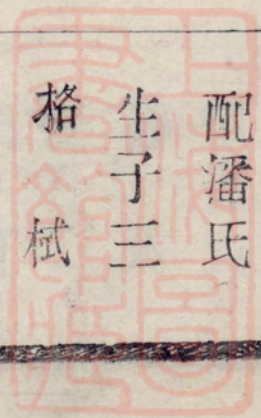 配潘氏
生子三
格　栻